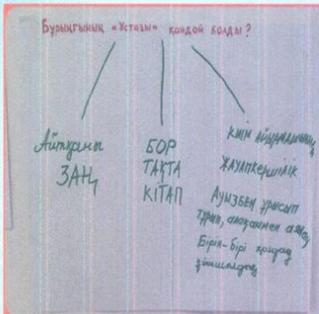 Бұрыңғының «Ұстазы» қандай болды?
Айтқаны
ЗАҢ
БОР
ТАҚТА
КІТАП
Киім
ЖАУАПКЕРШІЛІК
Ауызбен ұрысып
тұрып, алақанмен
Бірін-бірі